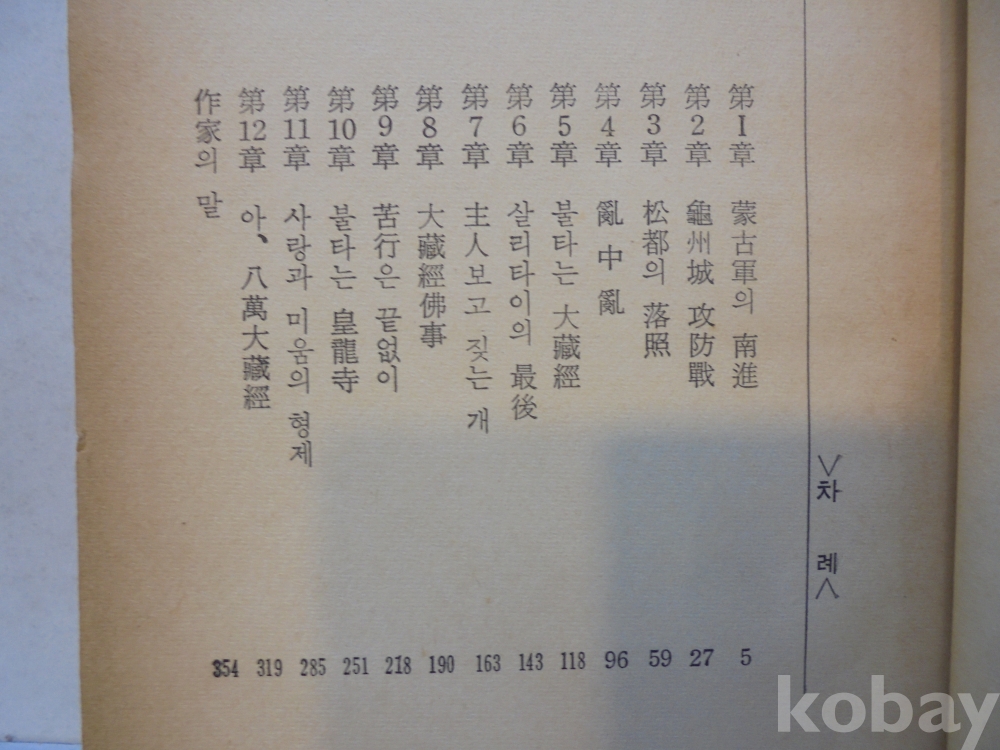 <차 례>
第1章 蒙古軍의 南進 5
第2章 龜州城 攻防戰 27
第3章 松都의 落照 59
第4章 亂中亂 96
第5章 불타는 大藏經 118
第6章 살리타이의 最後 143
第7章 主人보고 짖는 개 163
第8章 大藏經佛事 190
第9章 苦行은 끝없이 218
第10章 불타는 皇龍寺 251
第11章 사랑과 미움의 형제 285
第12章 아、八萬大藏經 319
作家의 말 354
kobay